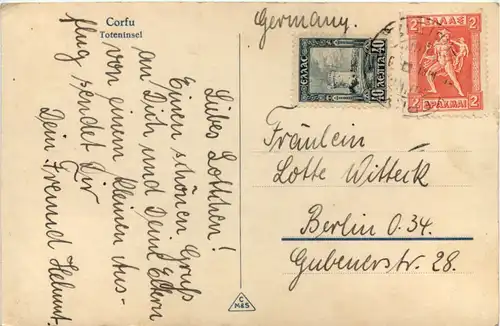 Corfu
Toteninsel
Germany.
ΕΛΛΑΣ
40 ΛΕΠΤΑ 40
ΕΛΛΑΣ
2 2
2 ΔΡΑΧΜΑΙ 2
Liebes Lottchen!
Einen schönen Gruss
an Dich und Deine Eltern
von einem kleinen Aus-
flug sendet Dir
Dein Freund Helmut.
Fräulein
Lotte Witteck
Berlin O.34.
Gubenerstr. 28.
C
M&S